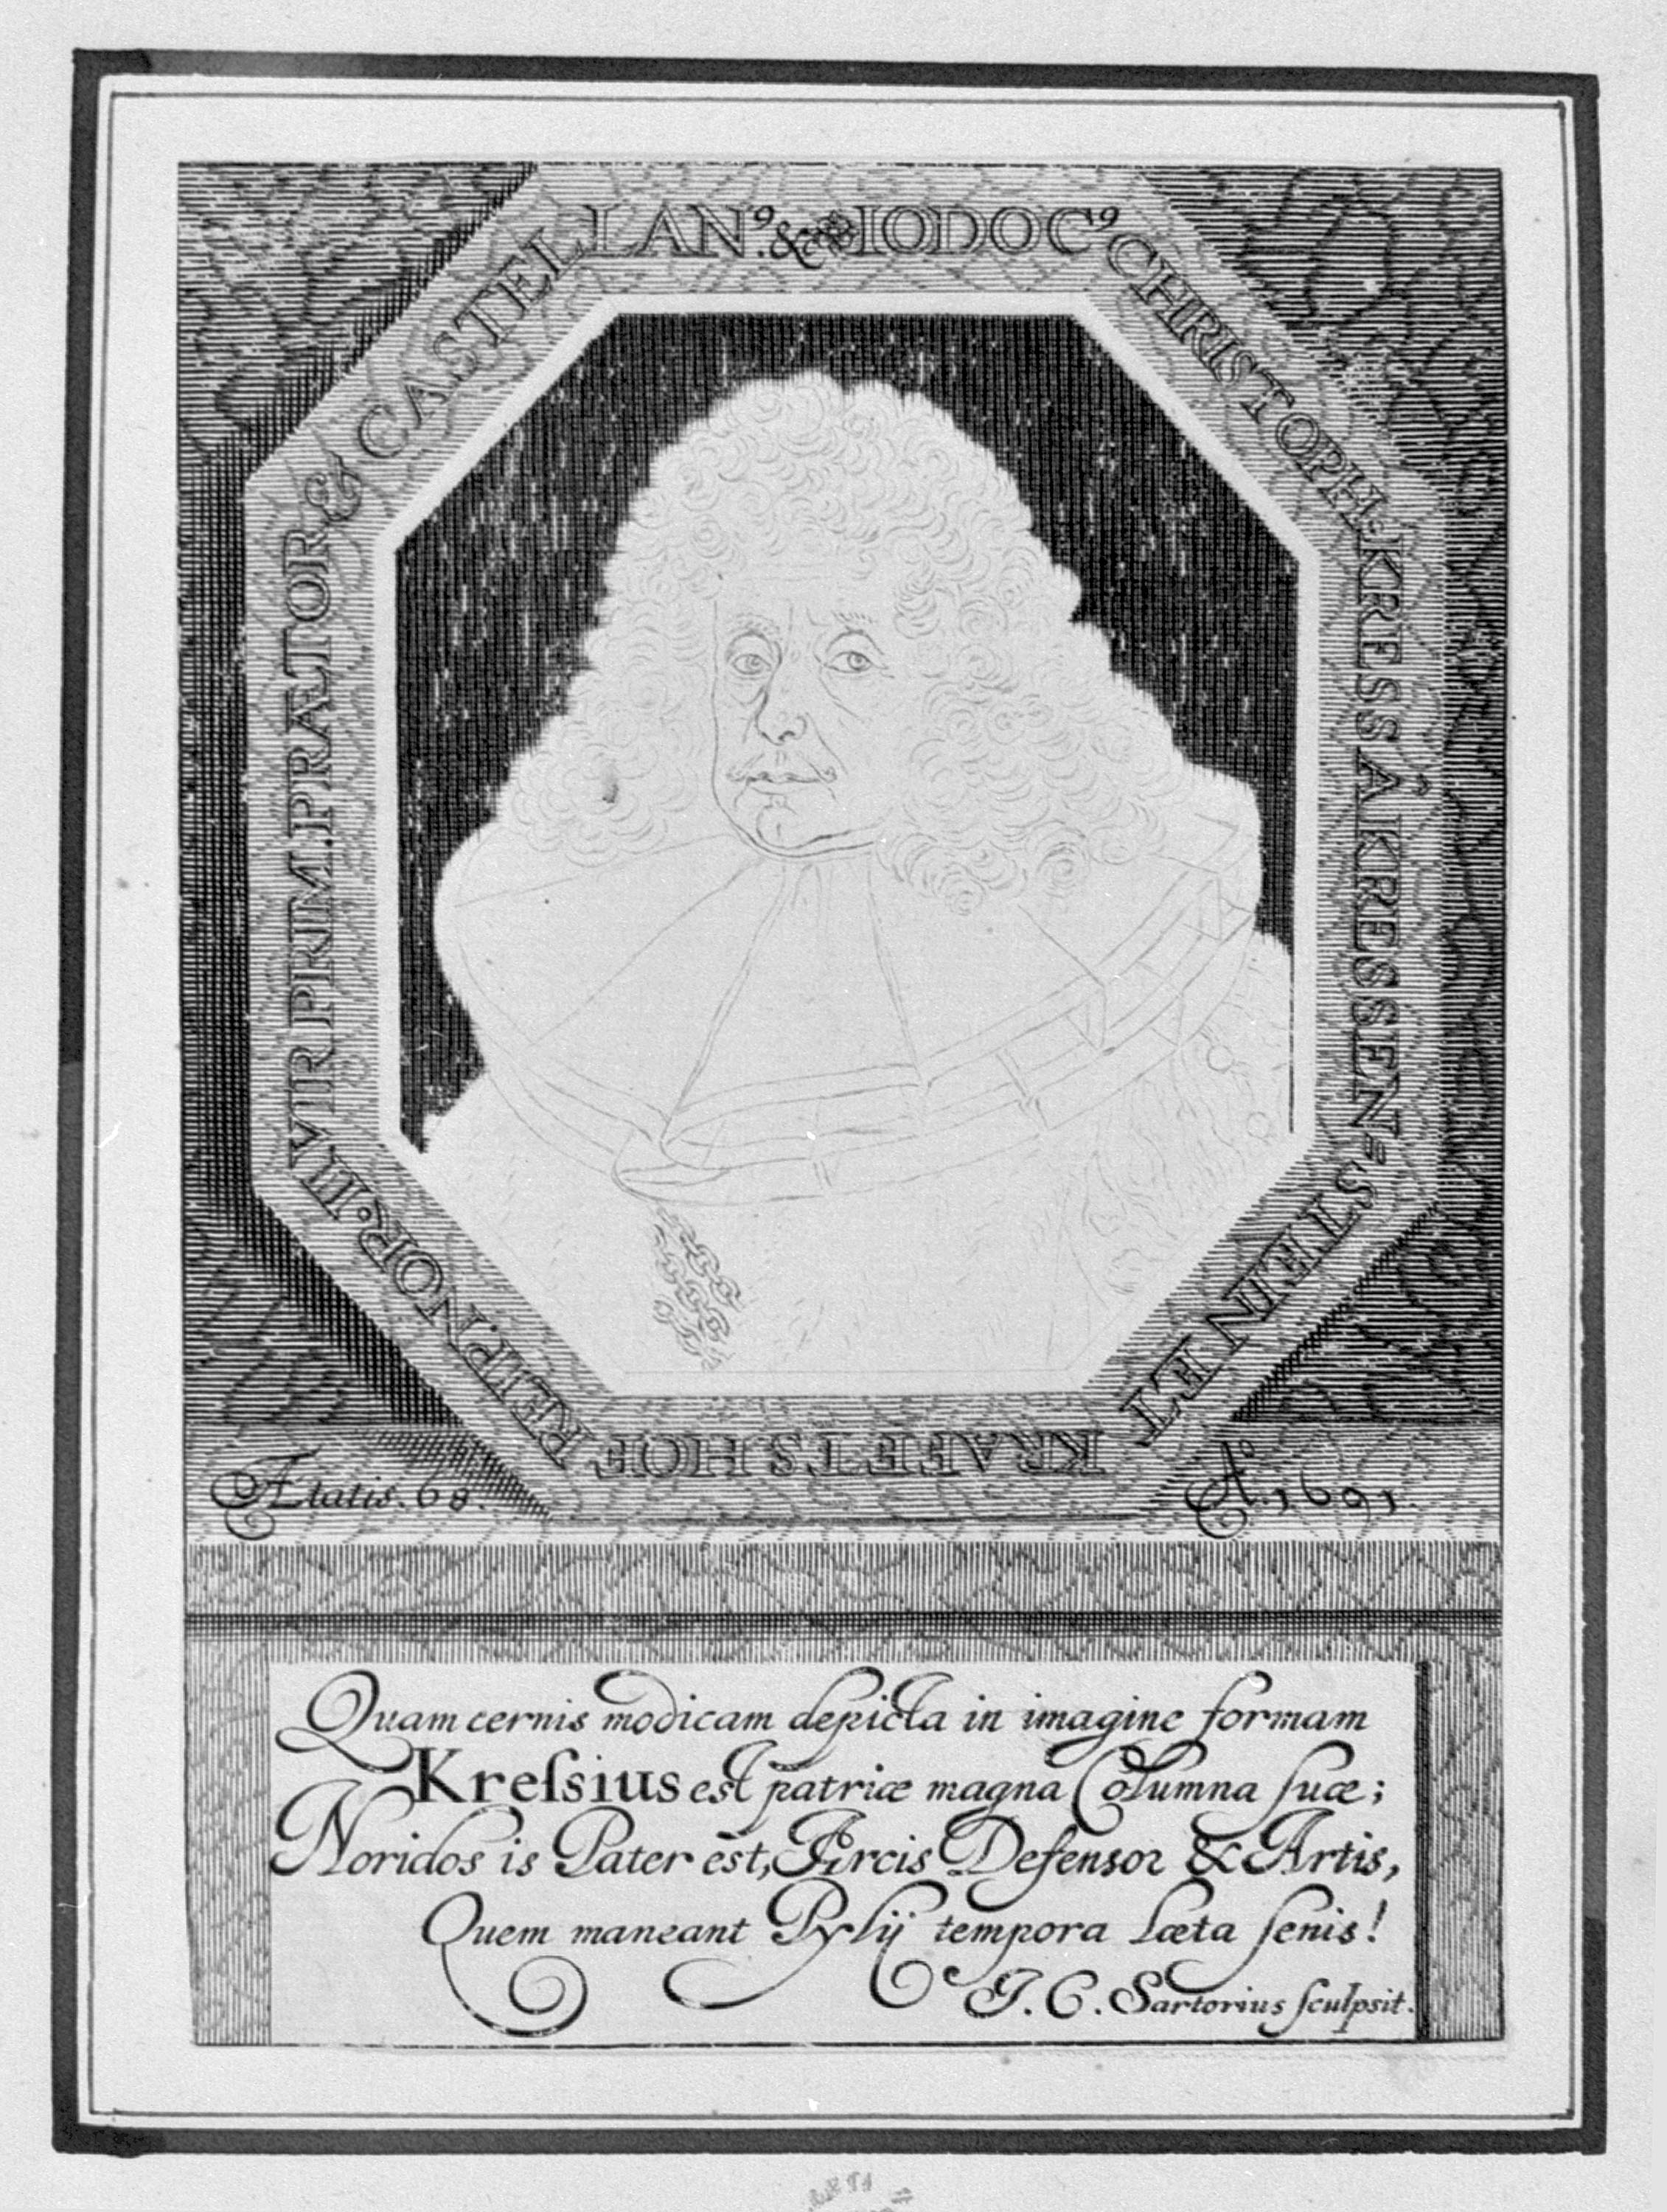 IODOCꝰ CHRISTOPH: KRESS Â KRESSEN⸗STEIN ET KRAFFTSHOF REIP. NOR. II VIR PRIM. PRÆTOR & CASTELLANꝰ. &c
Ætatis. 68.
Aº. 1691.
Quam cernis modicam depicta in imagine formam
Kreſsius est patriæ magna Columna ſuæ;
Noridos is Pater est, Arcis Defensor & Artis,
Quem maneant Pylij tempora læta ſenis!
J. C. Sartorius ſculpsit.